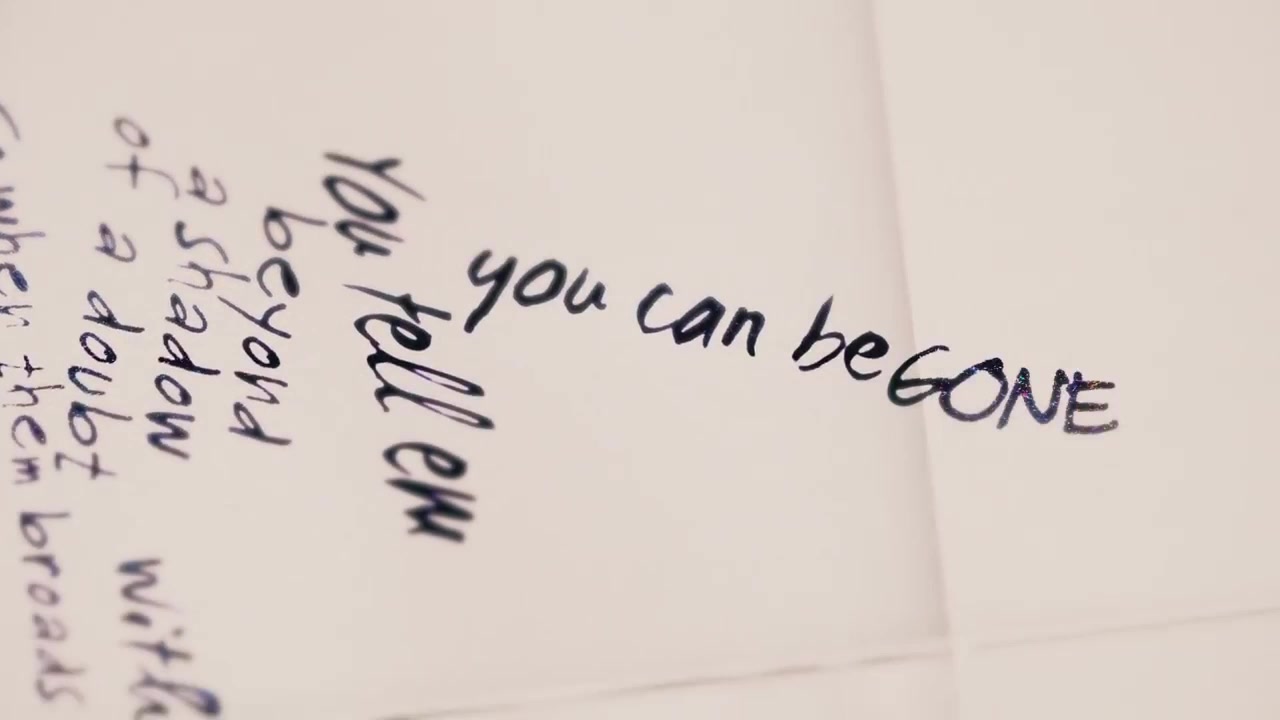 you can beGONE
You tell em
beyond
a shadow
of a doubt
with
when them broads